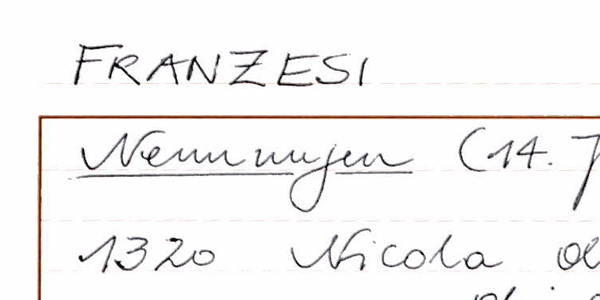 FRANZESI
Nennungen (14. J
1320 Nicola